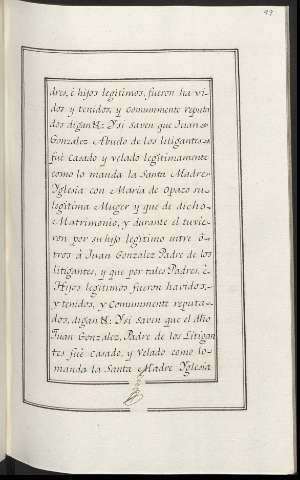 49
dres, è hijos legitimos, fueron havi
dos y tenidos, y comunmente reputa
dos digan &: Ysi saven que Juan
Gonzalez Abuelo de los litigantes
fuè casado y velado legitimamente
como lo manda la Santa Madre
Yglesia con Maria de Opazo su
legitima Muger y que de dicho
Matrimonio, y durante el tuvie
ron por su hijo legitimo entre ô
tros â Juan Gonzalez Padre de los
litigantes, y que por tales Padres, è
Hijos legitimos fueron havidos,
y tenidos, y Comunmente reputa
dos, digan &: Ysi saven que el dho
Juan Gonzalez, Padre de los Litigan
tes fuè Casado, y Velado como lo
manda la Santa Madre Yglesia